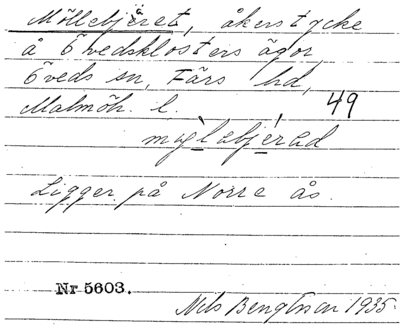 Möllebjäret, åkerstycke
å Övedsklosters ägor
Öveds sn, Färs hd,
Malmöh. l. 49
Ligger på Norre ås.
Nr 5603.
Nils Bengtson 1935.